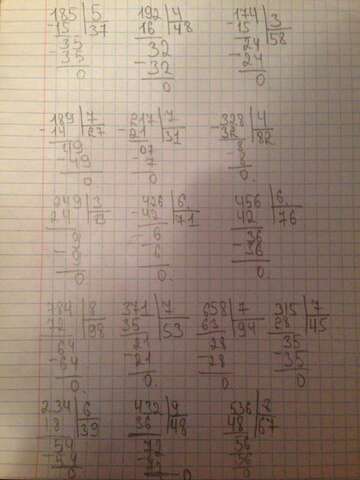 185 5 192 4 174 3
-15 37 16 48 -15 58
35 32 24
-35 -32 -24
0 0 0
189 7 217 7 328 4
-14 27 -21 31 -32 82
49 07 8
49 -7 -8
0 0 0.
249 3 426 6 456 6
24 -42 71 42 76
9 6 36
-9 6 -36
0 0. 0.
784 8 371 7 658 7 315 7
72 98 35 53 63 94 28 45
64 21 28 35
-64 -21 -28 -35
0. 0. 0 0
234 6 432 9 536 8
18 39 36 48 48 67
54 72 56
-54 72 56
0 0 0